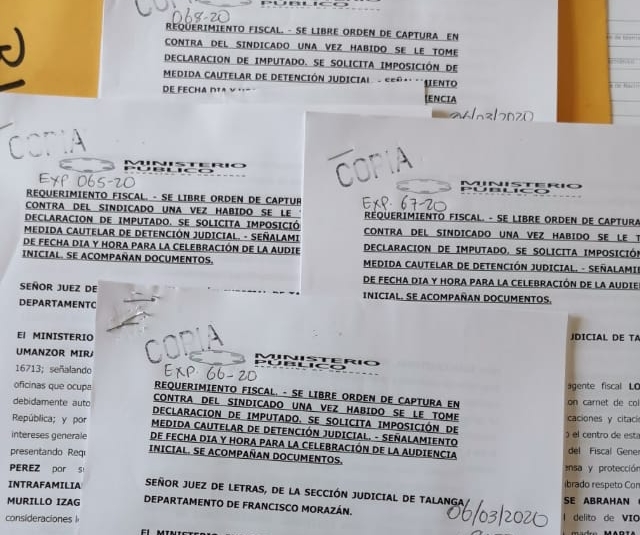 COPIA
PÚBLICO
068-20
REQUERIMIENTO FISCAL. - SE LIBRE ORDEN DE CAPTURA EN
CONTRA DEL SINDICADO UNA VEZ HABIDO SE LE TOME
DECLARACION DE IMPUTADO. SE SOLICITA IMPOSICIÓN DE
MEDIDA CAUTELAR DE DETENCIÓN JUDICIAL
DE FECHA DIA Y
06/03/2020
COPIA
MINISTERIO
PÚBLICO
EXP 065-20
REQUERIMIENTO FISCAL. - SE LIBRE ORDEN DE CAPTUR
CONTRA DEL SINDICADO UNA VEZ HABIDO SE LE
DECLARACION DE IMPUTADO. SE SOLICITA IMPOSICIÓ
MEDIDA CAUTELAR DE DETENCIÓN JUDICIAL. - SEÑALAMI
DE FECHA DIA Y HORA PARA LA CELEBRACIÓN DE LA AUDIE
INICIAL. SE ACOMPAÑAN DOCUMENTOS.
SEÑOR JUEZ DE
DEPARTAMENTO
El MINISTERIO
UMANZOR MIRA
16713; señalando
oficinas que ocupa
debidamente auto
República; y por
intereses generale
presentando Requ
PEREZ por s
INTRAFAMILIA
MURILLO IZAG
consideraciones l
COPIA
MINISTERIO
PÚBLICO
EXP. 67-20
REQUERIMIENTO FISCAL. - SE LIBRE ORDEN DE CAPTURA
CONTRA DEL SINDICADO UNA VEZ HABIDO SE LE T
DECLARACION DE IMPUTADO. SE SOLICITA IMPOSICIÓN
MEDIDA CAUTELAR DE DETENCIÓN JUDICIAL. - SEÑALAMI
DE FECHA DIA Y HORA PARA LA CELEBRACIÓN DE LA AUDIEN
INICIAL. SE ACOMPAÑAN DOCUMENTOS.
JUDICIAL DE TALA
agente fiscal LO
on carnet de col
caciones y citacio
el centro de esta
del Fiscal Gener
ensa y protección
ibrado respeto Com
SE ABRAHAN
l delito de VIO
madre MARIA
COPIA
MINISTERIO
PÚBLICO
EXP. 66-20
REQUERIMIENTO FISCAL. - SE LIBRE ORDEN DE CAPTURA EN
CONTRA DEL SINDICADO UNA VEZ HABIDO SE LE TOME
DECLARACION DE IMPUTADO. SE SOLICITA IMPOSICIÓN DE
MEDIDA CAUTELAR DE DETENCIÓN JUDICIAL. - SEÑALAMIENTO
DE FECHA DIA Y HORA PARA LA CELEBRACIÓN DE LA AUDIENCIA
INICIAL. SE ACOMPAÑAN DOCUMENTOS.
SEÑOR JUEZ DE LETRAS, DE LA SECCIÓN JUDICIAL DE TALANGA
DEPARTAMENTO DE FRANCISCO MORAZÁN.
06/03/2020